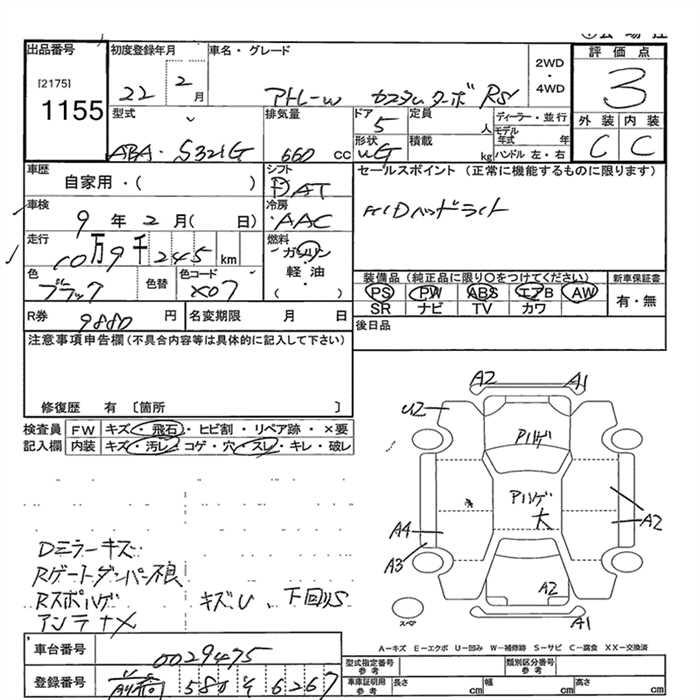 出品番号 初度登録年月 車名・グレード 評価点
[2175]
1155
22 2月 アトレーW カスタムターボRS
2WD・4WD
3
型式 排気量 ドア 定員 ディーラー・並行 外装 内装
ABA-S321G 660cc 5 人 モデル年式 年 C C
形状 積載 kg ハンドル 左・右
車歴 シフト セールスポイント (正常に機能するものに限ります)
自家用・( )
AT
車検 冷房
9年2月( 日) AAC
HIDヘッドライト
走行 燃料
10万9千245km ガソリン
軽油
( )
色 色替 色コード
ブラック X07
装備品 (純正品に限り○をつけてください) 新車保証書
PS PW ABS エアB AW 有・無
SR ナビ TV カワ
R券 9880円 名変期限 月 日
後日品
注意事項申告欄(不具合内容等は具体的に記入して下さい)
修復歴 有 〔箇所 〕
検査員 FW キズ・飛石・ヒビ割・リペア跡・×要
記入欄 内装 キズ・汚レ・コゲ・穴・スレ・キレ・破レ
A2 A1
U2
Aハゲ
Aハゲ
大
A4 A2
A3
A2
スペア A1
Dミラーキズ
Rゲートダンパー不良
Rスポハゲ キズU、下回りS
アンテナX
A-キズ E-エクボ U-凹み W-補修跡 S-サビ C-腐食 XX-交換済
車台番号 0029475
型式指定番号 参考 類別区分番号 参考
登録番号 580 6267
車庫証明用 参考 長さ cm 幅 cm 高さ cm